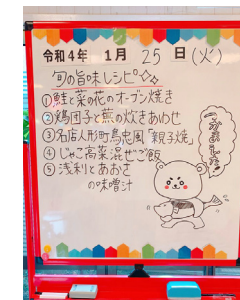 令和4年 1月 25日(火)
旬の旨味レシピ
①鮭と菜の花のオーブン焼き
②鶏団子と蕪の炊きあわせ
③名店人形町鳥忠風「親子焼」
④じゃこ高菜混ぜご飯
⑤浅利とあおさ
の味噌汁